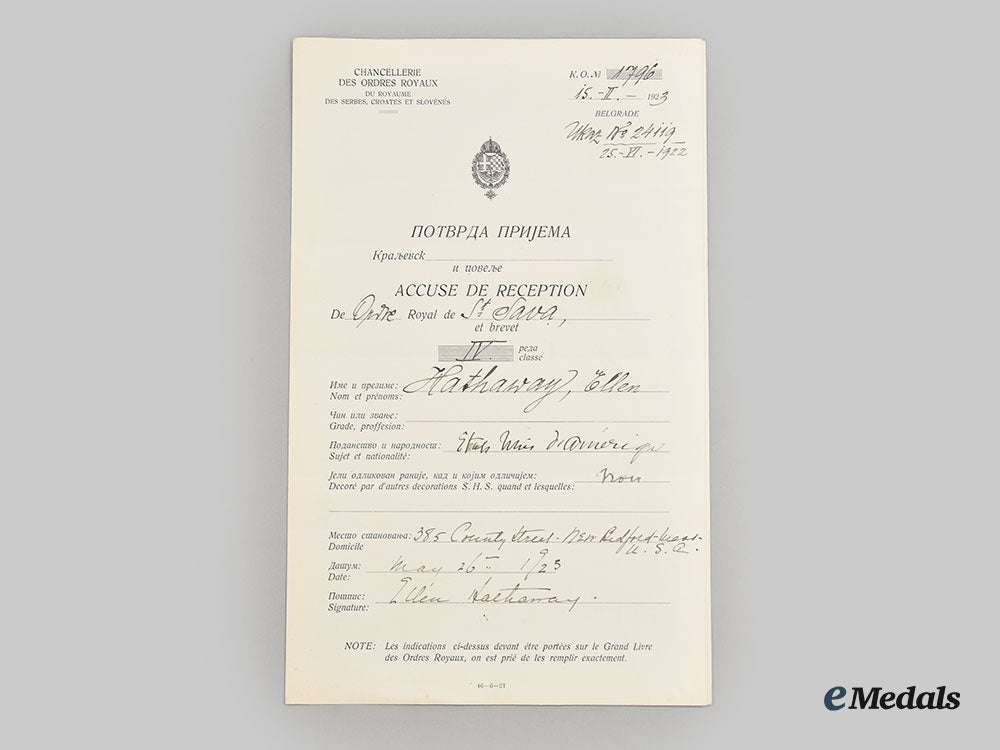 CHANCELLERIE
DES ORDRES ROYAUX
DU ROYAUME
DES SERBES, CROATES ET SLOVÈNES
K. O. № 1796
15.-II.- 1923
BELGRADE
Ukaz № 24119
25.-VI.-1922
ПОТВРДА ПРИЈЕМА
Краљевск
и повеље
ACCUSE DE RECEPTION
De Ordre Royal de St Sava,
et brevet
IV. реда
classe
Име и презиме: Hathaway, Ellen
Nom et prénoms:
Чин или звање:
Grade, proffesion:
Поданство и народност: États Unis d'Amérique
Sujet et nationalité:
Јели одликован раније, кад и којим одличијем: non
Decoré par d'autres decorations S. H. S. quand et lesquelles:
Место становања: 385 County Street - New Bedford - Mass -
Domicile U. S. A.
Датум: May 26th 1923
Date:
Потпис: Ellen Hathaway.
Signature:
NOTE: Les indications ci-dessus devant être portées sur le Grand Livre
des Ordres Royaux, on est prié de les remplir exactement.
eMedals